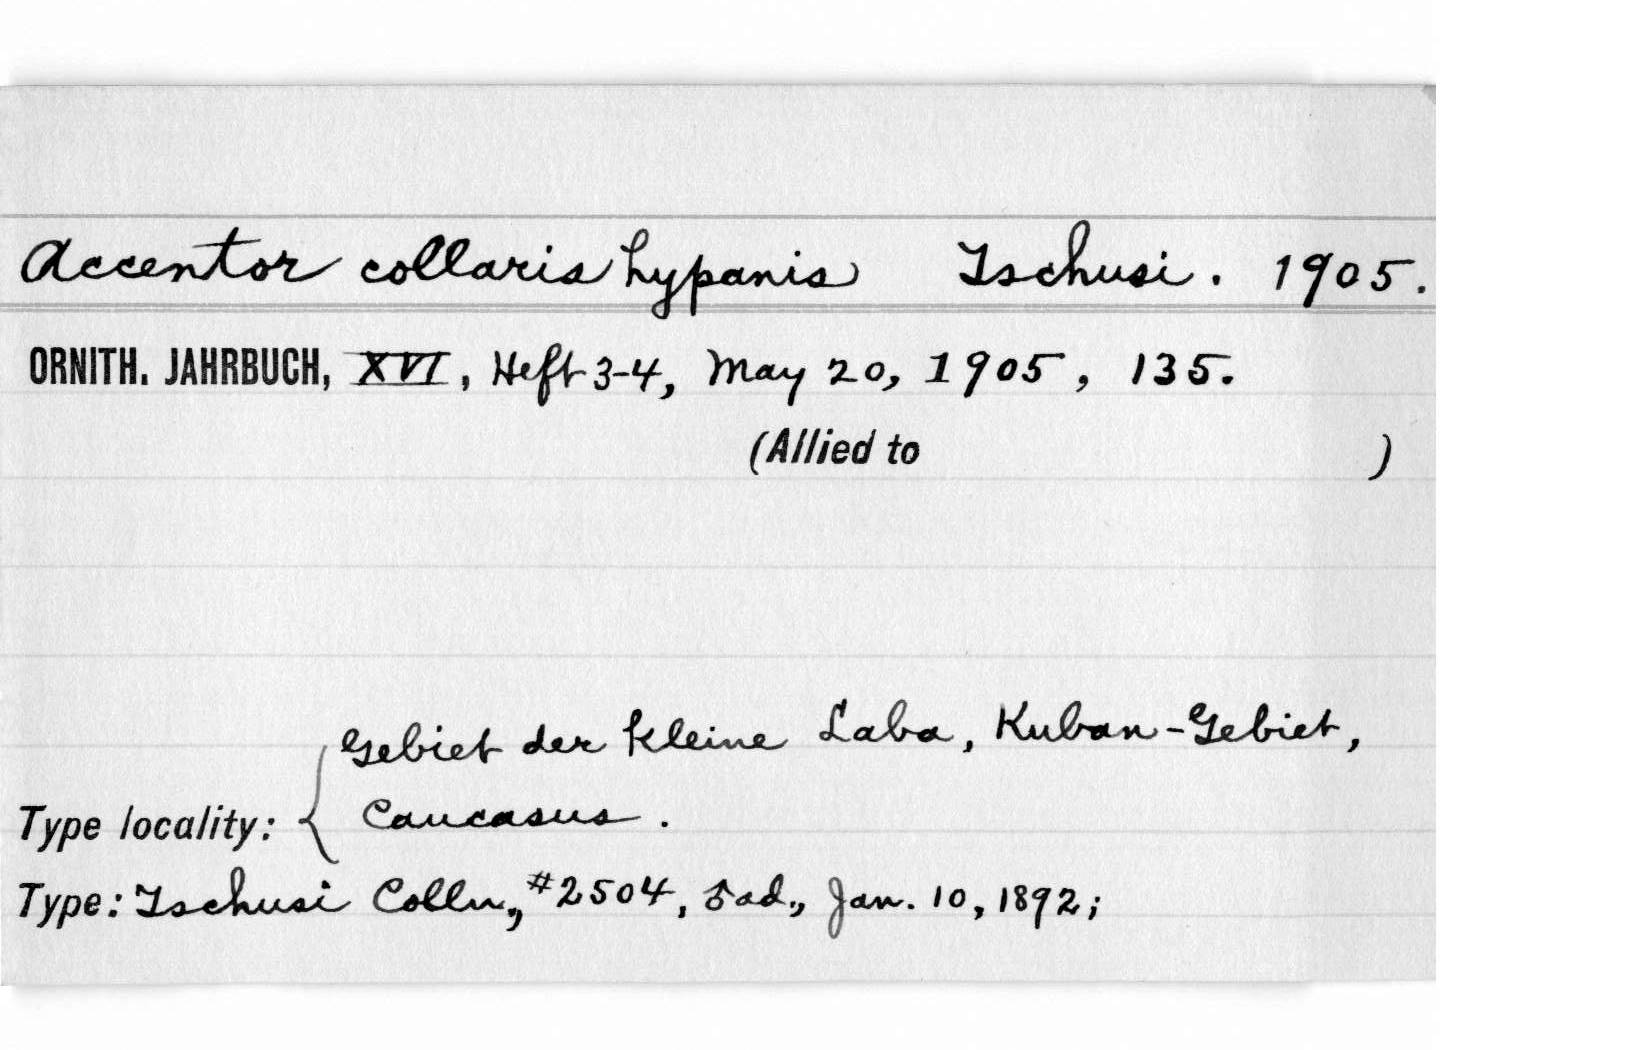 Accentor collaris hypanis Tschusi. 1905.
ORNITH. JAHRBUCH, XVI, Heft 3-4, May 20, 1905, 135.
(Allied to )
Gebiet der kleine Laba, Kuban-Gebiet,
Type locality: { Caucasus.
Type: Tschusi Colln., #2504, ad., Jan. 10, 1892;